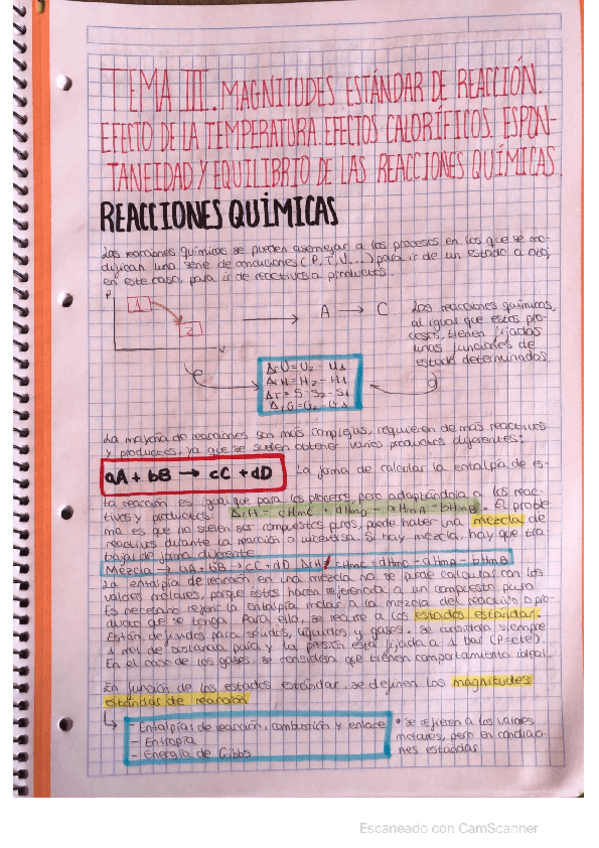 TEMA III. MAGNITUDES ESTÁNDAR DE REACCIÓN.
EFECTO DE LA TEMPERATURA. EFECTOS CALORÍFICOS. ESPON-
TANEIDAD Y EQUILIBRIO DE LAS REACCIONES QUÍMICAS.
REACCIONES QUÍMICAS
Las reacciones químicas se pueden asemejar a los procesos en los que se mo-
difican una serie de condiciones (P, T, V, ...) para ir de un estado a otro,
en este caso, para ir de reactivos a productos.
P
1
2
V
A → C
Las reacciones químicas,
al igual que estos pro-
cesos, tienen fijadas
unas funciones de
estado determinadas
ΔrU = U2 - U1
ΔrH = H2 - H1
S2 - S1
ΔrG = G2 - G1
La mayoría de reacciones son más complejas, requieren de más reactivos
y productos, ya que se suelen obtener varios productos diferentes:
aA + bB → cC + dD
La forma de calcular la entalpía de es-
ta reacción es igual que para los procesos, pero adaptándola a los reac-
tivos y productos: ΔrH = cHmC + dHmD - aHmA - bHmB. El proble-
ma es que no suelen ser compuestos puros, puede haber una mezcla de
reactivos durante la reacción o viceversa. Si hay mezcla, hay que tra-
bajar de forma diferente.
Mezcla → aA + bB → cC + dD ΔrH ≠ cHmC + dHmD - aHmA - bHmB
La entalpía de reacción en una mezcla no se puede calcular con los
valores molares, porque estos hacen referencia a un compuesto puro.
Es necesario referir la entalpía molar a la mezcla del reactivo o pro-
ducto que se tenga. Para ello, se recurre a los estados estándar.
Están definidos para sólidos, líquidos y gases. Se considera siempre
1 mol de sustancia pura y la presión está fijada a 1 bar (P=cte).
En el caso de los gases, se considera que tienen comportamiento ideal.
En función de los estados estándar, se definen las magnitudes
estándar de reacción
- Entalpías de reacción, combustión y enlace
- Entropía
- Energía de Gibbs
* se refieren a los valores
molares, pero en condicio-
nes estándar
Escaneado con CamScanner